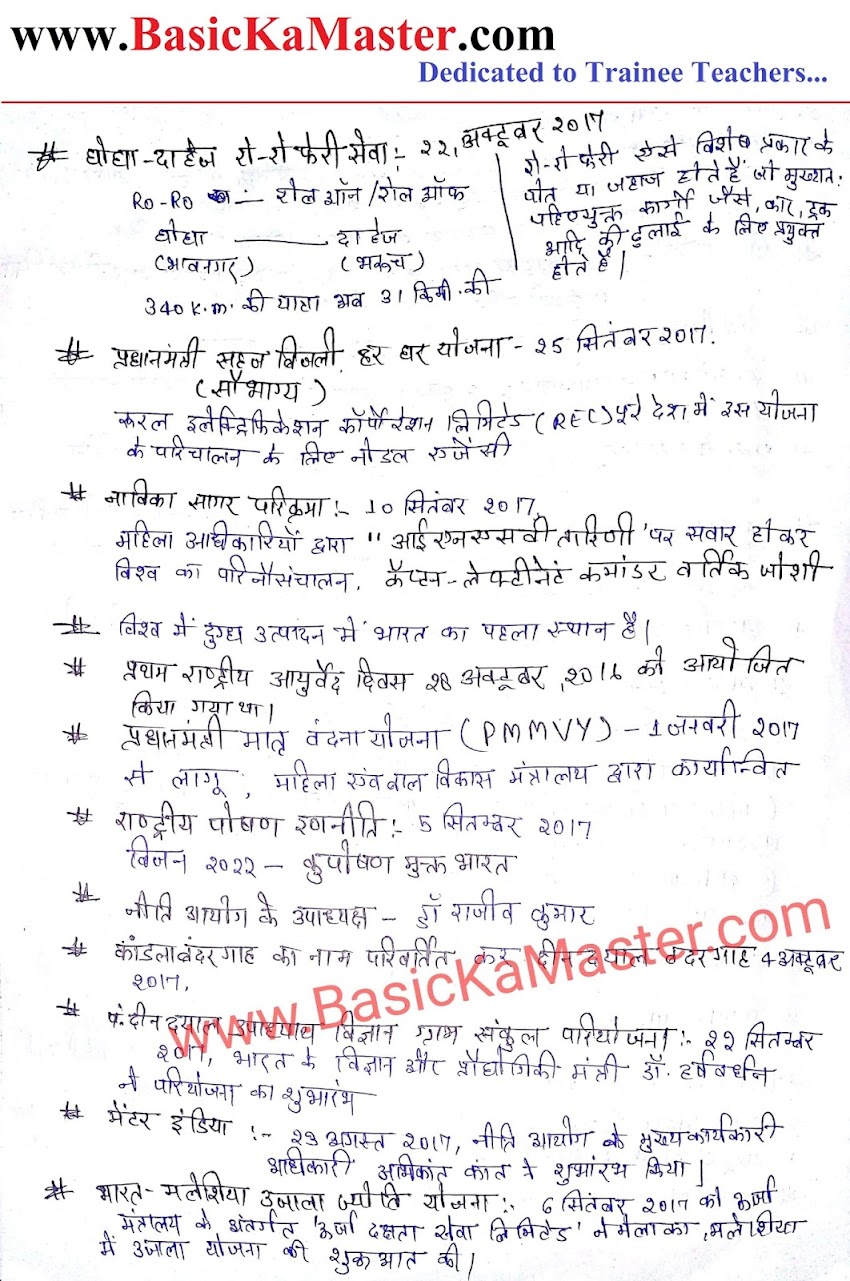 www.BasicKaMaster.com
Dedicated to Trainee Teachers...
# घोघा-दाहेज रो-रो फेरी सेवा :- 22, अक्टूबर 2017
RO-RO — रोल ऑन / रोल ऑफ
घोघा —— दाहेज
(भावनगर) (भकच)
340 k.m. की यात्रा अब 31 किमी. की
रो-रो फेरी ऐसे विशेष प्रकार के
पोत या जहाज होते हैं जो मुख्यत:
पहिएयुक्त कार्गो जैसे, कार, ट्रक
आदि की ढुलाई के लिए प्रयुक्त
होते हैं।
# प्रधानमंत्री सहज बिजली, हर घर योजना - 25 सितंबर 2017.
(सौभाग्य)
करल इलेक्ट्रिफिकेशन कॉर्पोरेशन लिमिटेड (REC) पूरे देश में इस योजना
के परिचालन के लिए नोडल एजेंसी
# नाविका सागर परिक्रमा :- 10 सितंबर 2017,
महिला अधिकारियों द्वारा "आईएनएसवी तारिणी' पर सवार होकर
विश्व का परिनौसंचालन. कैप्टन - लेफ्टीनेंट कमांडर वर्तिक जोशी
# विश्व में दुग्ध उत्पादन में भारत का पहला स्थान है।
# प्रथम राष्ट्रीय आयुर्वेद दिवस 28 अक्टूबर, 2016 को आयोजित
किया गया था।
# प्रधानमंत्री मातृ वंदना योजना (PMMVY) - 1 जनवरी 2017
से लागू, महिला एंव बाल विकास मंत्रालय द्वारा कार्यान्वित
# राष्ट्रीय पोषण रणनीति :- 5 सितम्बर 2017
विजन 2022 - कुपोषण मुक्त भारत
# नीति आयोग के उपाध्यक्ष - डॉ राजीव कुमार
# कांडला बंदरगाह का नाम परिवर्तित कर दीन दयाल बंदरगाह 4 अक्टूबर
2017.
# पं. दीन दयाल उपाध्याय विज्ञान ग्राम संकुल परियोजना :- 22 सितम्बर
2017, भारत के विज्ञान और प्रौद्योगिकी मंत्री डॉ. हर्षवर्धन
ने परियोजना का शुभारंभ
# मेंटर इंडिया :- 23 अगस्त 2017, नीति आयोग के मुख्य कार्यकारी
अधिकारी अमिकांत कांत ने शुभांरभ किया।
# भारत-मलेशिया उजाला ज्योति योजना :- 6 सितंबर 2017 को ऊर्जा
मंत्रालय के अंतर्गत 'ऊर्जा दक्षता सेवा लिमिटेड' ने मेलाका, मलेशिया
में उजाला योजना की शुरूआत की।
www.BasicKaMaster.com